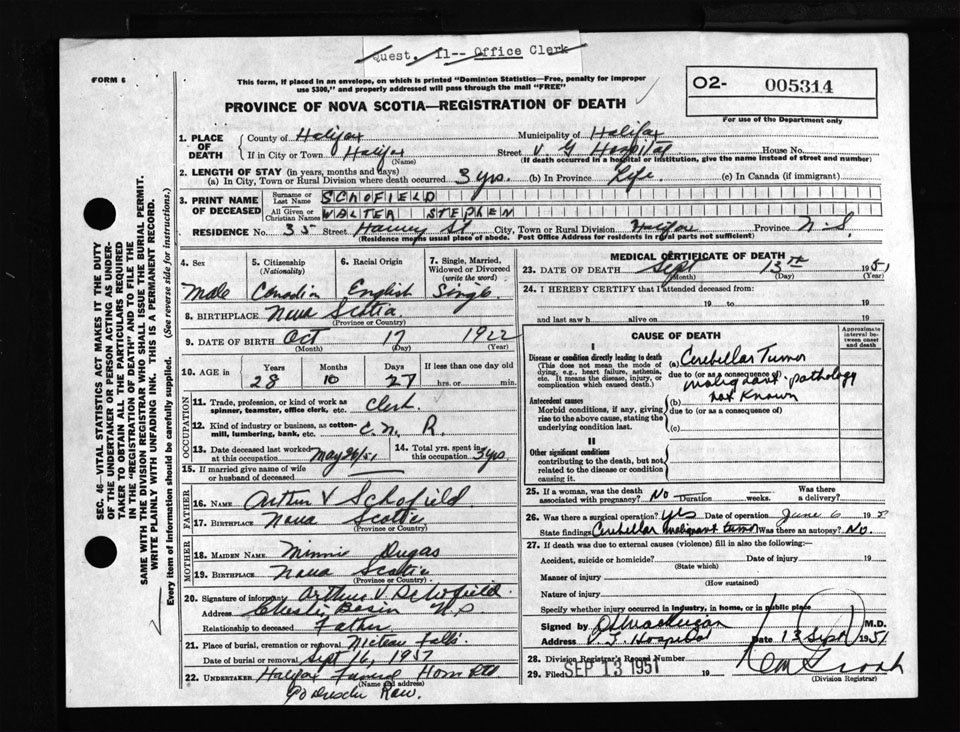 Quest. 11-- Office Clerk
FORM 6
This form, if placed in an envelope, on which is printed "Dominion Statistics—Free, penalty for improper
use $300," and properly addressed will pass through the mail "FREE"
O2- 005314
For use of the Department only
PROVINCE OF NOVA SCOTIA—REGISTRATION OF DEATH
1. PLACE OF DEATH
County of Halifax Municipality of Halifax
If in City or Town Halifax Street V G Hospital House No.
(Name) (If death occurred in a hospital or institution, give the name instead of street and number)
2. LENGTH OF STAY (in years, months and days)
(a) In City, Town or Rural Division where death occurred 3 yrs. (b) In Province Life. (c) In Canada (if immigrant)
3. PRINT NAME OF DECEASED
Surname or Last Name SCHOFIELD
All Given or Christian Names WALTER STEPHEN
RESIDENCE No. 35 Street Harvey St. City, Town or Rural Division Halifax Province N-S.
(Residence means usual place of abode. Post Office Address for residents in rural parts not sufficient)
4. Sex 5. Citizenship (Nationality) 6. Racial Origin 7. Single, Married, Widowed or Divorced (write the word)
Male Canadian English Single.
8. BIRTHPLACE Nova Scotia
(Province or Country)
9. DATE OF BIRTH Oct 17 1922
(Month) (Day) (Year)
10. AGE IN Years Months Days If less than one day old
28 10 27 hrs. or min.
OCCUPATION
11. Trade, profession, or kind of work as spinner, teamster, office clerk, etc. Clerk.
12. Kind of industry or business, as cotton-mill, lumbering, bank, etc. C. N. R.
13. Date deceased last worked at this occupation May 26/51 14. Total yrs. spent in this occupation 3 yrs.
15. If married give name of wife or husband of deceased
FATHER
16. NAME Arthur V Schofield
17. BIRTHPLACE Nova Scotia
(Province or Country)
MOTHER
18. MAIDEN NAME Minnie Dugas
19. BIRTHPLACE Nova Scotia
(Province or Country)
20. Signature of informant Arthur V. Schofield.
Address Chester Basin N.S
Relationship to deceased Father
21. Place of burial, cremation or removal Falls.
Date of burial or removal Sept 16, 1951
22. UNDERTAKER Halifax Funeral Home Ltd
(Name and address)
Row.
MEDICAL CERTIFICATE OF DEATH
23. DATE OF DEATH Sept 13th 1951
(Month) (Day) (Year)
24. I HEREBY CERTIFY that I attended deceased from:
19 to 19
and last saw h alive on 19
CAUSE OF DEATH
Approximate interval between onset and death
I
Disease or condition directly leading to death
(This does not mean the mode of dying, e.g., heart failure, asthenia, etc. It means the disease, injury, or complication which caused death.)
(a) Cerebellar Tumor
due to (or as a consequence of)
malignant - pathology
Antecedent causes
Morbid conditions, if any, giving rise to the above cause, stating the underlying condition last.
(b) not known
due to (or as a consequence of)
(c)
II
Other significant conditions
contributing to the death, but not related to the disease or condition causing it.
25. If a woman, was the death associated with pregnancy? No Duration weeks. Was there a delivery?
26. Was there surgical operation? yes Date of operation June 6 195
State findings Cerebellar malignant tumor Was there an autopsy? No.
27. If death was due to external causes (violence) fill in also the following:
Accident, suicide or homicide? Date of injury 19
(State which)
Manner of injury
(How sustained)
Nature of injury
Specify whether injury occurred in industry, in home, or in public place
Signed by M.D.
Address V. G. Hospital Date 13 Sept 1951
28. Division Registrar's Record Number
29. Filed SEP 13 1951 19
(Division Registrar)
SEC. 46—VITAL STATISTICS ACT MAKES IT THE DUTY
OF THE UNDERTAKER OR PERSON ACTING AS UNDERTAKER TO OBTAIN ALL THE PARTICULARS REQUIRED
IN THE "REGISTRATION OF DEATH" AND TO FILE THE
SAME WITH THE DIVISION REGISTRAR WHO SHALL ISSUE THE BURIAL PERMIT.
WRITE PLAINLY WITH UNFADING INK. THIS IS A PERMANENT RECORD.
Every item of information should be carefully supplied. (See reverse side for instructions.)